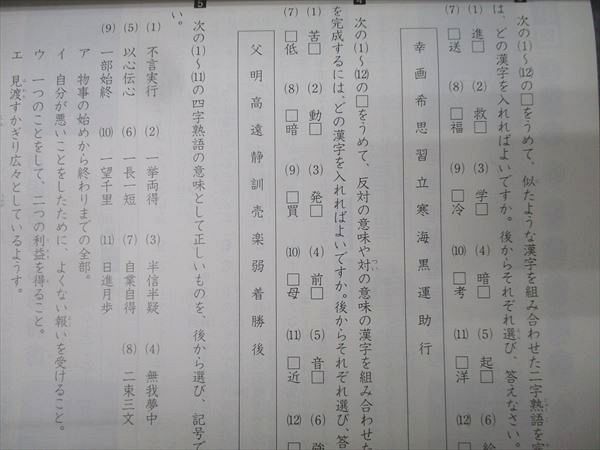 次の(1)〜(12)の□をうめて、似たような漢字を組み合わせた二字熟語を完
は、どの漢字を入れればよいですか。後からそれぞれ選び、答えなさい。
(1) 進□ (2) 救□ (3) 学□ (4) 暗□ (5) 起□ (6) 絵
(7) □送 (8) □福 (9) □冷 (10) □考 (11) □洋 (12) □
幸 画 希 思 習 立 寒 海 黒 運 助 行
4
次の(1)〜(12)の□をうめて、反対の意味や対の意味の漢字を組み合わせた
つい
を完成するには、どの漢字を入れればよいですか。後からそれぞれ選び、答
(1) 苦□ (2) 動□ (3) 発□ (4) 前□ (5) 音□ (6) 強
(7) □低 (8) □暗 (9) □買 (10) □母 (11) □近 (12) □
父 明 高 遠 静 訓 売 楽 弱 着 勝 後
5
次の(1)〜(11)の四字熟語の意味として正しいものを、後から選び、記号で
い。
(1) 不言実行 (2) 一挙両得 (3) 半信半疑 (4) 無我夢中
(5) 以心伝心 (6) 一長一短 (7) 自業自得 (8) 二束三文
(9) 一部始終 (10) 一望千里 (11) 日進月歩
ア 物事の始めから終わりまでの全部。
イ 自分が悪いことをしたために、よくない報いを受けること。
ウ 一つのことをして、二つの利益を得ること。
エ 見渡すかぎり広々としているようす。